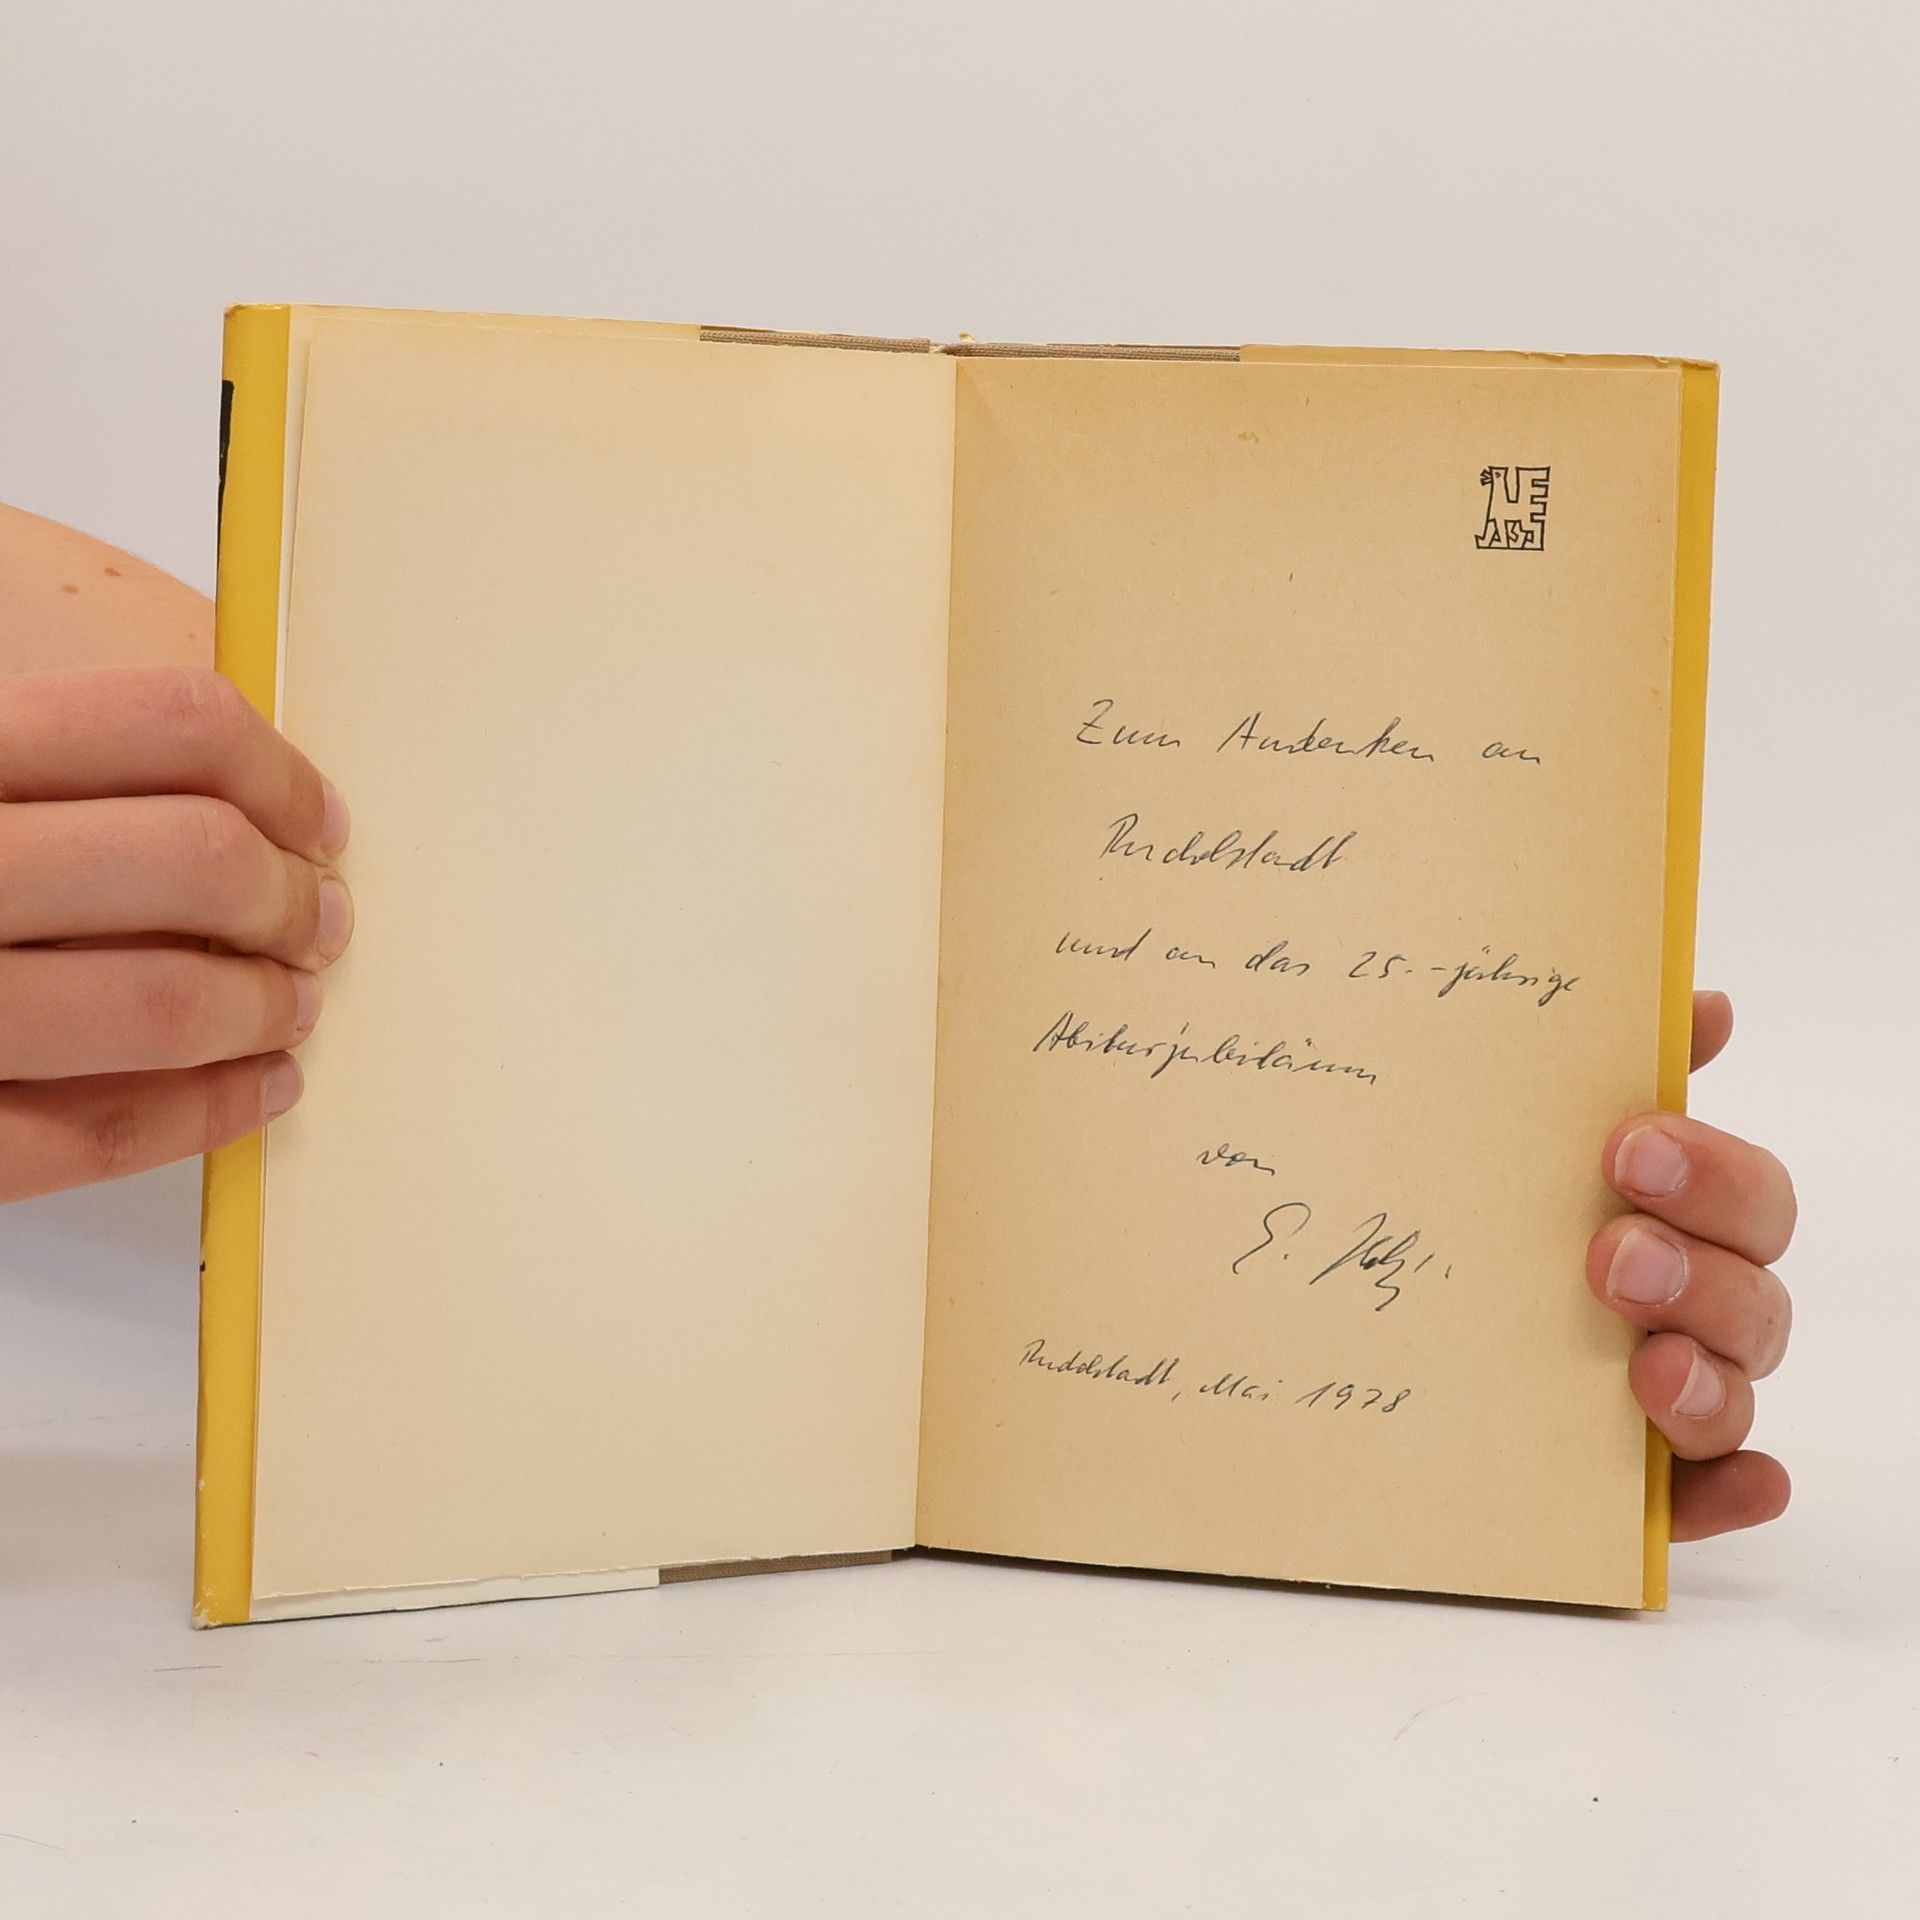 Zum Andenken an
Rudolstadt
und an das 25.-jährige
Abiturjubiläum
von
E.
Rudolstadt, Mai 1978